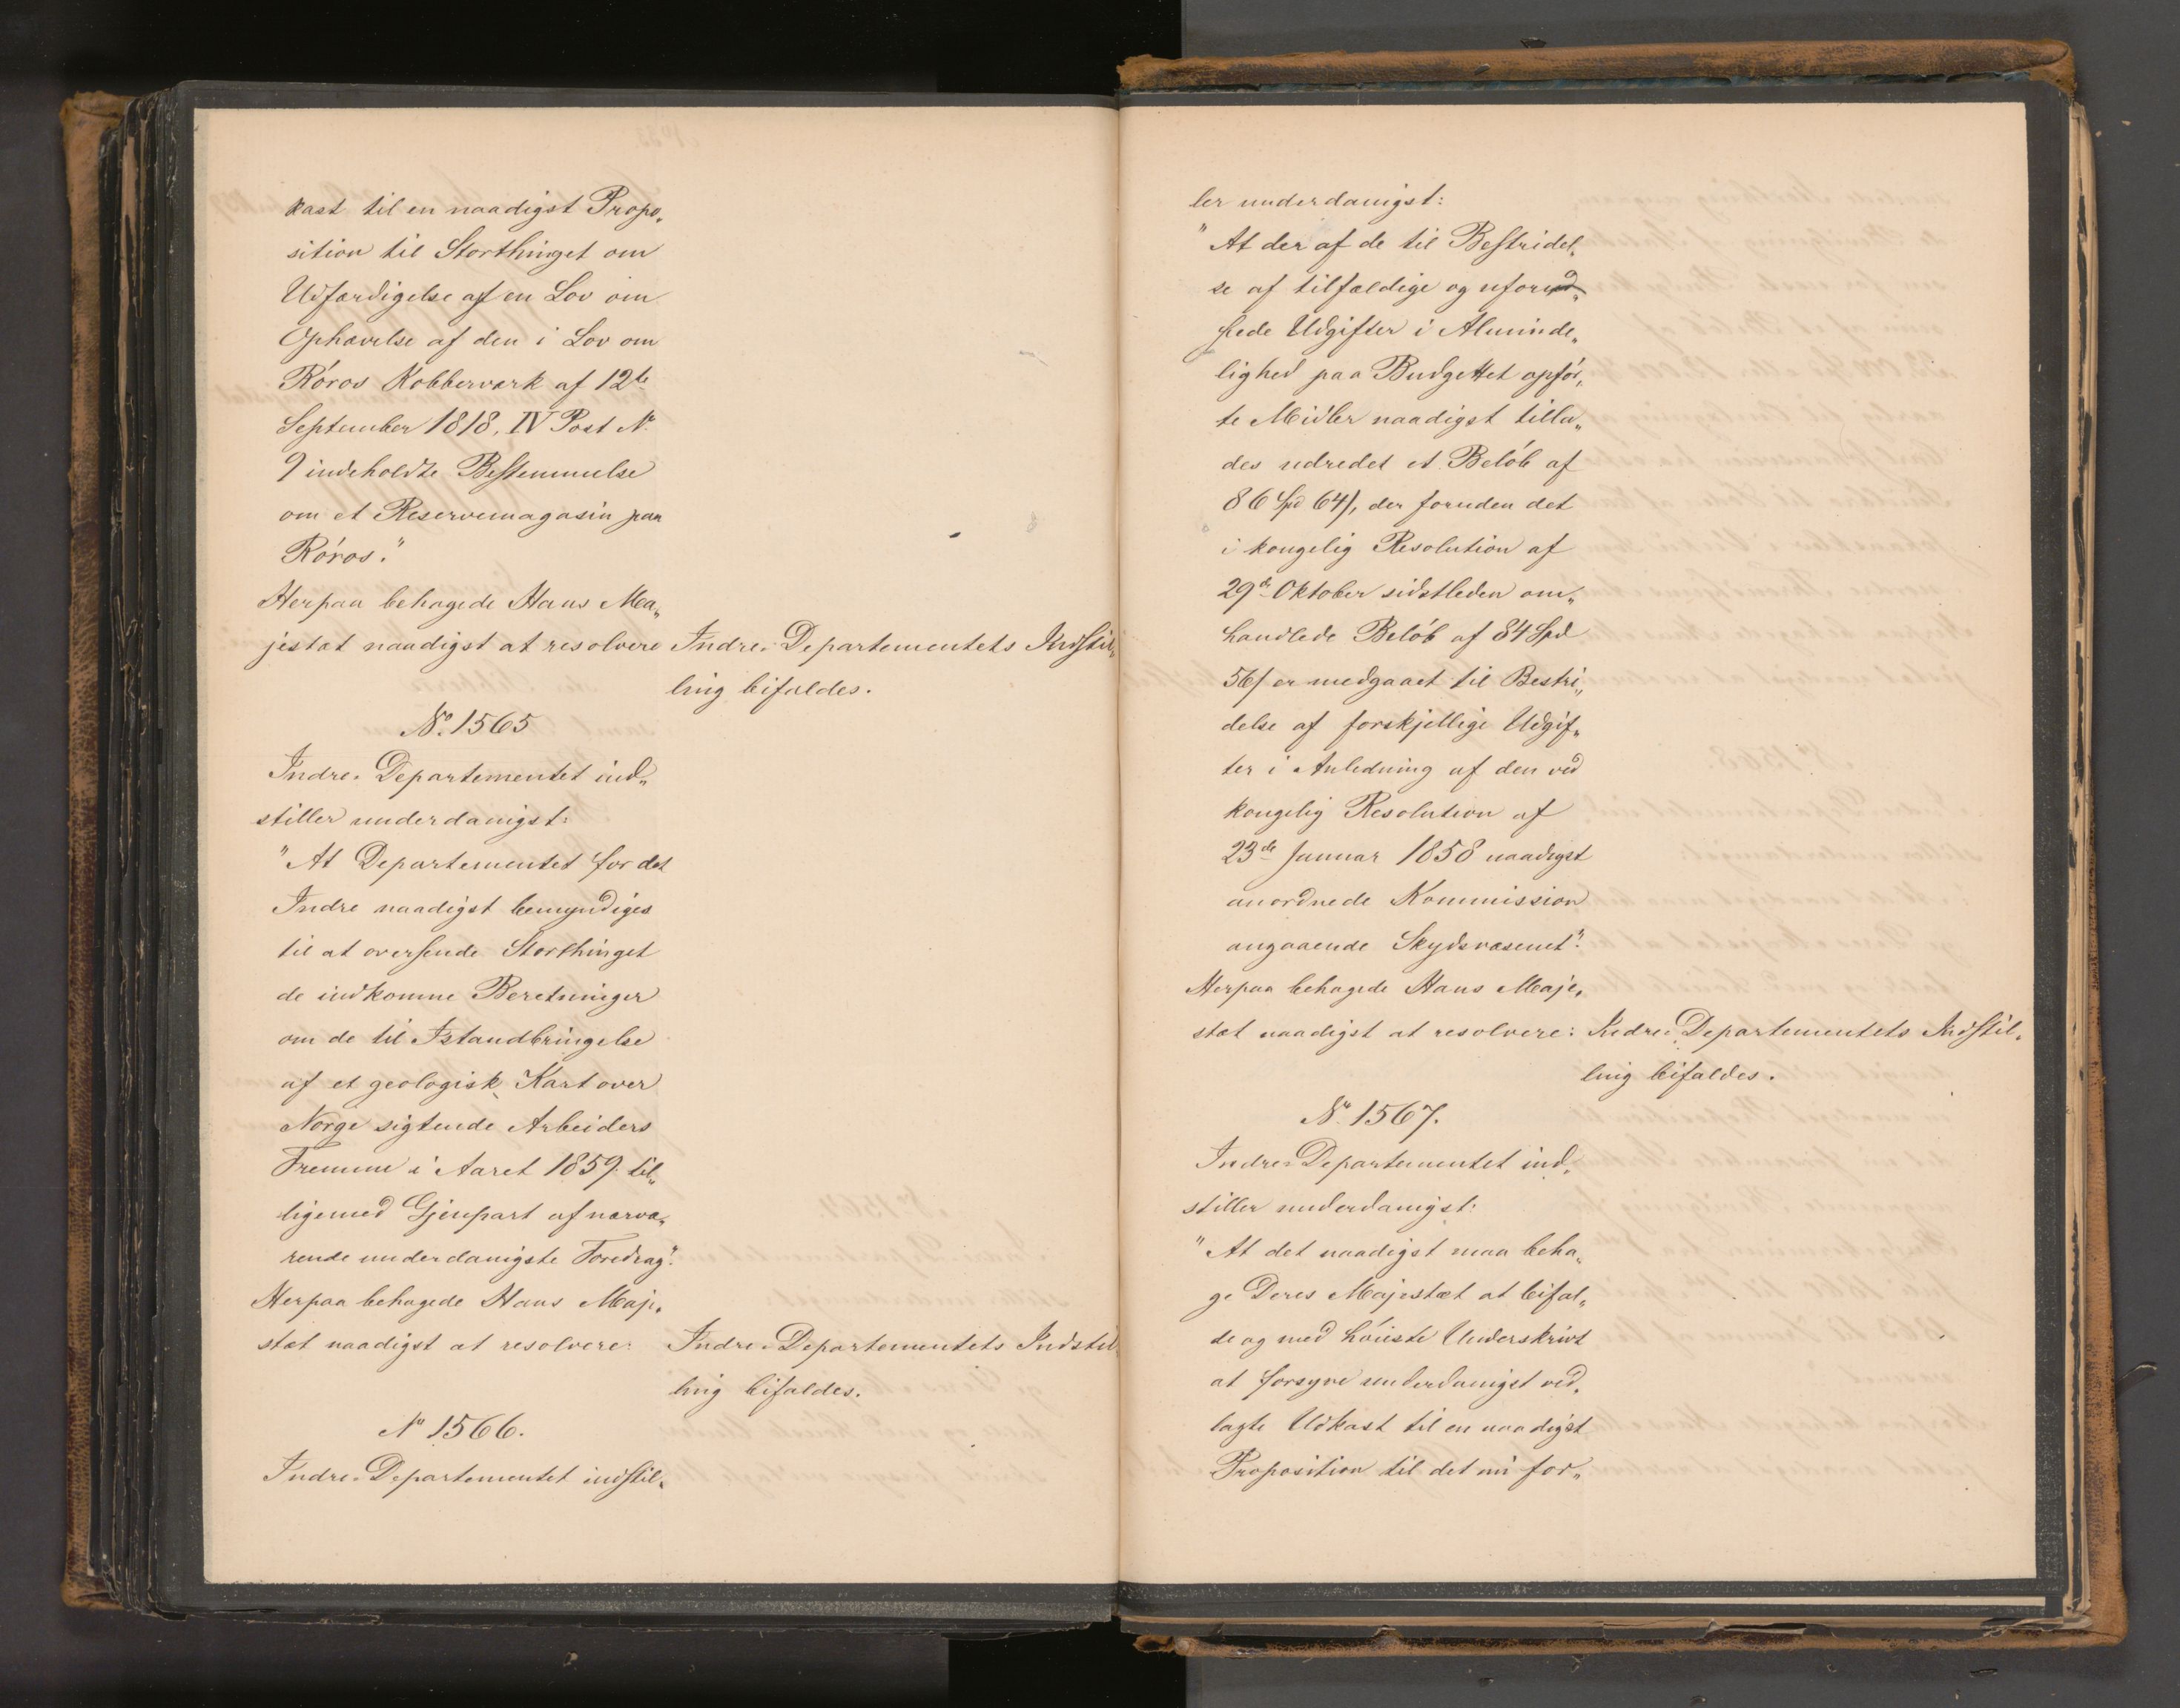 kast til en naadigst Propo„
sition til Storthinget om
Udfærdigelse af en Lov om
Ophævelse af den i Lov om
Röros Kobberværk af 12te
September 1818, IV Post No
9 indeholdte Bestemmelse
om et Reservemagasin paa
Röros."
Herpaa behagede Hans Ma„
jestæt naadigst at resolvere Indre-Departementets Indstil„
ling bifaldes.
No. 1565
Indre-Departementet ind„
stiller underdanigst:
"At Departementet for det
Indre naadigst bemyndiges
til at oversende Storthinget
de indkomne Beretninger
om de til Istandbringelse
af et geologisk Kart over
Norge sigtende Arbeiders
Fremme i Aaret 1859 til„
ligemed Gjenpart af nærvæ„
rende underdanigste Foredrag".
Herpaa behagede Hans Maje„
stæt naadigst at resolvere: Indre-Departementets Indstil„
ling bifaldes.
No 1566.
Indre-Departementet indstil„
ler underdanigst:
"At der af de til Bestridel„
se af tilfældige og uforud„
seede Udgifter i Alminde„
lighed paa Budgettet opför„
te Midler naadigst tilla„
des udredet et Belöb af
86 Spd 64 ß, der foruden det
i kongelig Resolution af
29de Oktober sidstleden om„
handlede Belöb af 84 Spd
56 ß er medgaaet til Bestri„
delse af forskjellige Udgif„
ter i Anledning af den ved
kongelig Resolution af
23de Januar 1858 naadigst
anordnede Kommission
angaaende Skydsvæsenet".
Herpaa behagede Hans Maje„
stæt naadigst at resolvere: Indre-Departementets Indstil„
ling bifaldes.
No. 1567.
Indre-Departementet ind„
stiller underdanigst:
"At det naadigst maa beha„
ge Deres Majestæt at bifal„
de og med höieste Underskrivt
at forsyne underdanigst ved„
lagte Udkast til en naadigst
Proposition til det nu for„